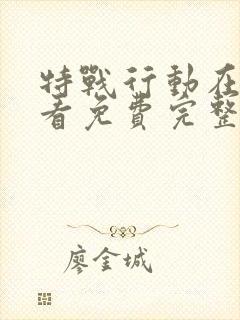 特戰行動在
看免費完整
廖金城